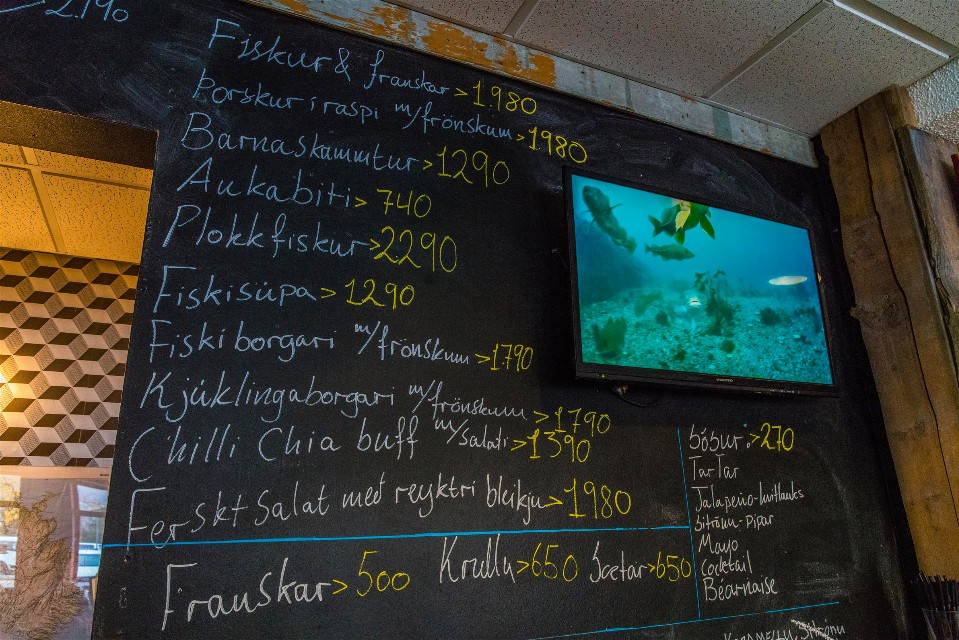 2.190
Fiskur & franskar > 1.980
Þorskur í raspi m/frönskum > 1980
Barnaskammtur > 1290
Aukabiti > 740
Plokkfiskur > 2290
Fiskisúpa > 1290
Fiskiborgari m/frönskum > 1.790
Kjúklingaborgari m/frönskum > 1790
Chilli Chia buff m/salati > 1390
Ferskt salat með reyktri bleikju > 1980
Franskar > 500 Krullu > 650 Sætar > 650
Sósur: > 270
TarTar
Jalapeño-hvítlauks
Sítrónu-Pipar
Mayo
Cocktail
Béarnaise